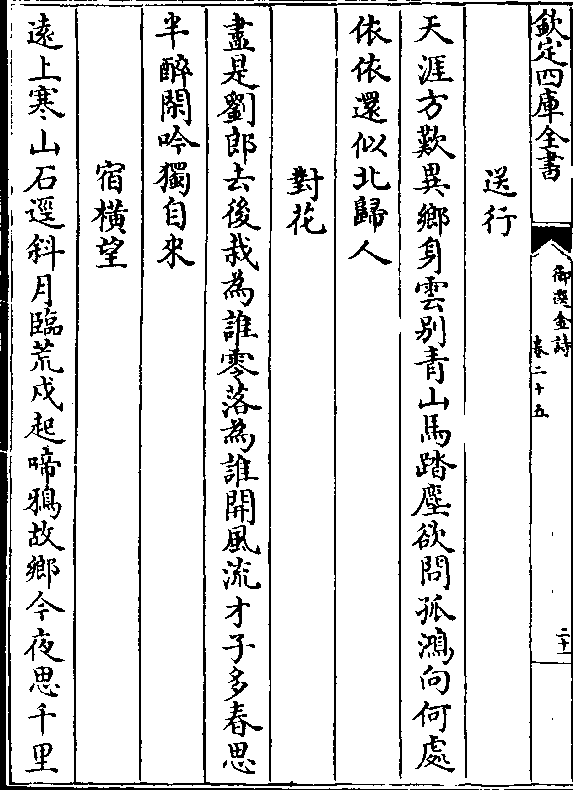 欽定四庫全書
御選金詩
卷二十五
二十一
送行
天涯方歎異鄉身雲别青山馬踏塵欲問孤鴻向何處
依依還似北歸人
對花
盡是劉郎去後栽為誰零落為誰開風流才子多春思
半醉閑吟獨自來
宿横望
遠上寒山石逕斜月臨荒戍起啼鴉故鄉今夜思千里